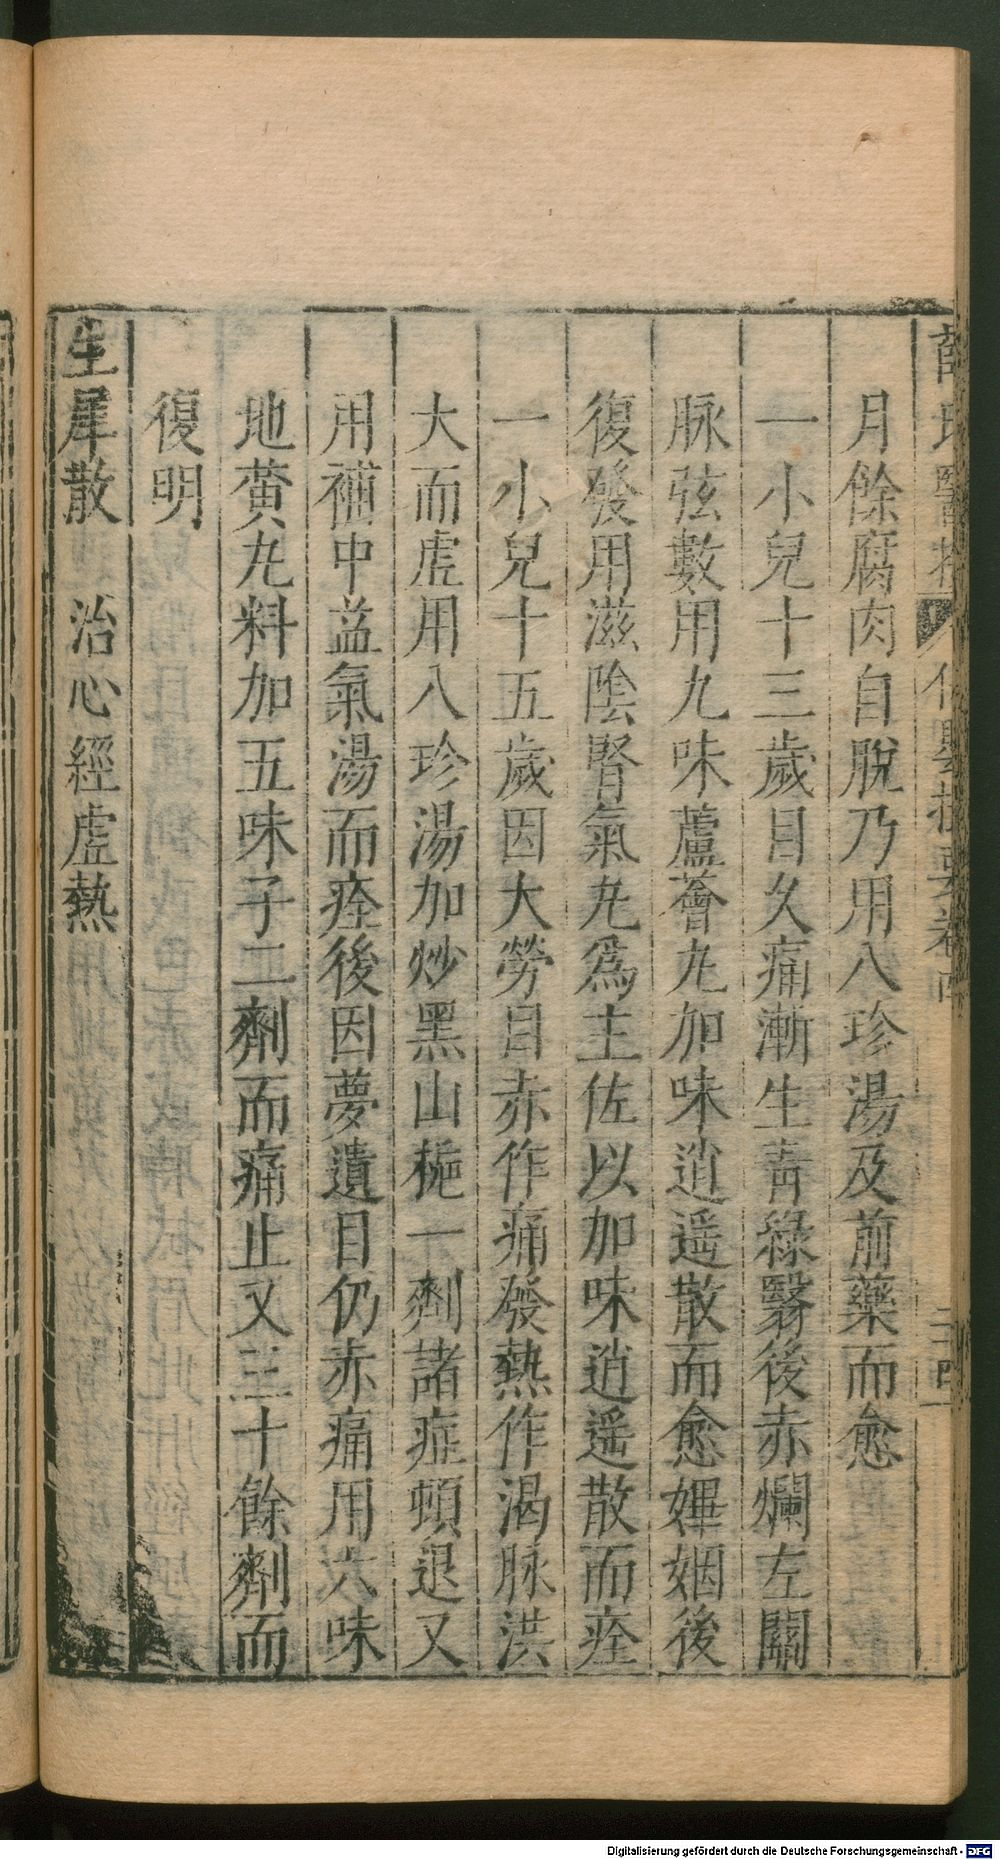 薛氏醫按 保嬰撮要卷四 二十四
月餘腐肉自脫乃用八珍湯及前藥而愈
一小兒十三歲目久痛漸生青綠翳後赤爛左關
脉弦數用九味蘆薈丸加味逍遥散而愈婢姻後
復發用滋陰腎氣丸爲主佐以加味逍遥散而痊
一小兒十五歲因大勞目赤作痛發熱作渴脉洪
大而虛用八珍湯加炒黑山梔一劑諸症頓退又
用補中益氣湯而痊後因夢遺目仍赤痛用六味
地黄丸料加五味子二劑而痛止又三十餘劑而
復明
生犀散 治心經虛熱
Digitalisierung gefördert durch die Deutsche Forschungsgemeinschaft - DFG